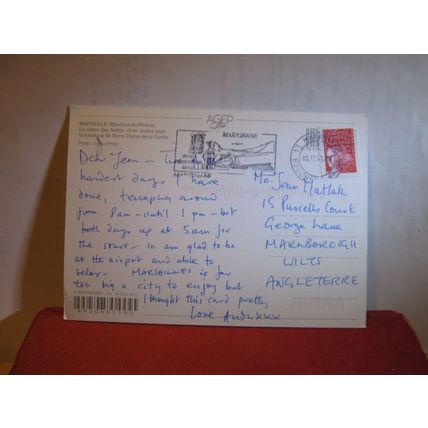 AGEP
MARSEILLE (Bouches-du-Rhône)
Le vallon des Auffes, et en arrière plan
la basilique de Notre Dame-de-la-Garde
MARIGNANE
MARIGNANE
Dear Jean -
hardest days I have
done, tramping around
from 8am - until 1 pm - but
both days up at 5am for
the start - so am glad to be
at the airport and able to
relax. MARSEILLES is far
too big a city to enjoy but
I thought this card pretty
Love
Ms. Jean Matlak
15 Purcells Court
George Lane
MARLBOROUGH
WILTS
ANGLETERRE